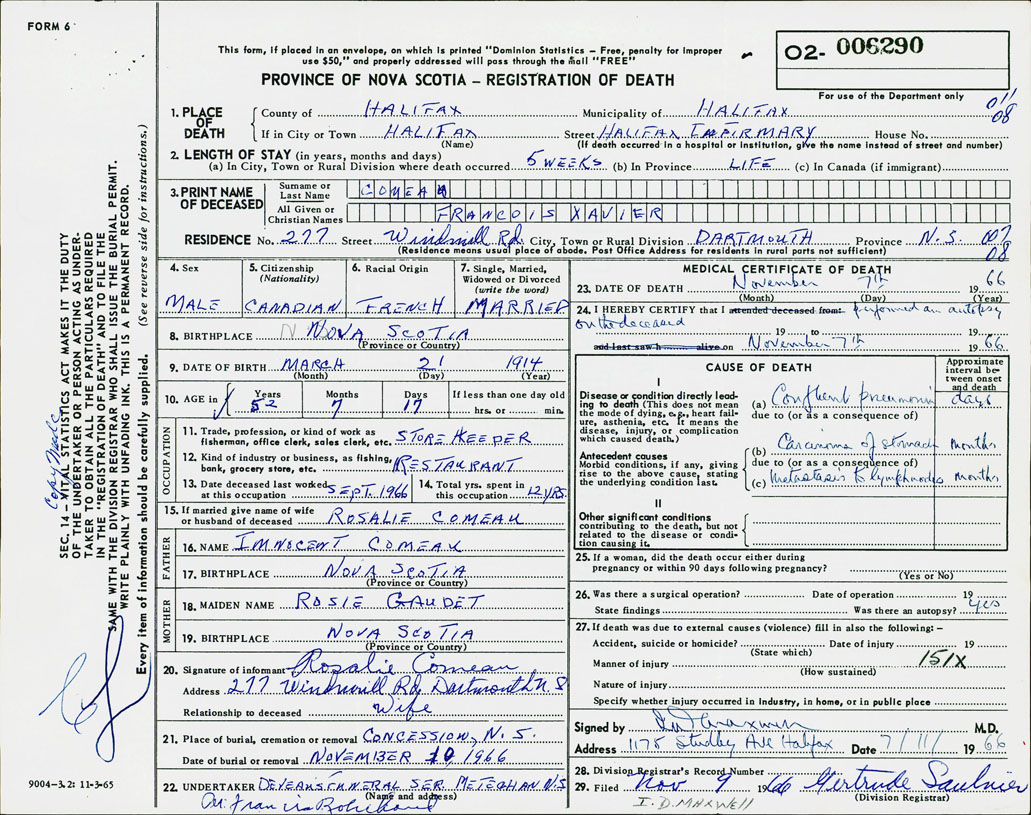 FORM 6
This form, if placed in an envelope, on which is printed "Dominion Statistics – Free, penalty for improper
use $50," and properly addressed will pass through the mail "FREE"
PROVINCE OF NOVA SCOTIA – REGISTRATION OF DEATH
02- 006290
For use of the Department only
011
08
1. PLACE OF DEATH
County of HALIFAX Municipality of HALIFAX
If in City or Town HALIFAX Street HALIFAX INFIRMARY House No.
(Name) (If death occurred in a hospital or institution, give the name instead of street and number)
2. LENGTH OF STAY (in years, months and days)
(a) In City, Town or Rural Division where death occurred 5 WEEKS (b) In Province LIFE (c) In Canada (if immigrant)
3. PRINT NAME OF DECEASED
Surname or Last Name COMEAU
All Given or Christian Names FRANCOIS XAVIER
RESIDENCE No. 277 Street Windmill Rd. City, Town or Rural Division DARTMOUTH Province N.S. 007
08
(Residence means usual place of abode. Post Office Address for residents in rural parts not sufficient)
4. Sex
MALE
5. Citizenship (Nationality)
CANADIAN
6. Racial Origin
FRENCH
7. Single, Married, Widowed or Divorced (write the word)
MARRIED
8. BIRTHPLACE N NOVA SCOTIA
(Province or Country)
9. DATE OF BIRTH MARCH 21 1914
(Month) (Day) (Year)
10. AGE in Years Months Days If less than one day old
52 7 17 hrs. or min.
OCCUPATION
11. Trade, profession, or kind of work as fisherman, office clerk, sales clerk, etc. STORE KEEPER
12. Kind of industry or business, as fishing, bank, grocery store, etc. RESTAURANT
13. Date deceased last worked at this occupation SEPT. 1966
14. Total yrs. spent in this occupation 12 YRS.
15. If married give name of wife or husband of deceased ROSALIE COMEAU
FATHER
16. NAME INNOCENT COMEAU
17. BIRTHPLACE NOVA SCOTIA
(Province or Country)
MOTHER
18. MAIDEN NAME ROSIE GAUDET
19. BIRTHPLACE NOVA SCOTIA
(Province or Country)
20. Signature of informant Rosalie Comeau
Address 277 Windmill Rd, Dartmouth N S
Relationship to deceased Wife
21. Place of burial, cremation or removal CONCESSION, N. S.
Date of burial or removal NOVEMBER 10 1966
22. UNDERTAKER DEVEAU'S FUNERAL SER. METEGHAN N.S
(Name and address)
MEDICAL CERTIFICATE OF DEATH
23. DATE OF DEATH November 7th 1966
(Month) (Day) (Year)
24. I HEREBY CERTIFY that I attended deceased from: performed an autopsy
on the deceased 19 to 19
and last saw h alive on November 7th 1966
CAUSE OF DEATH
Approximate interval between onset and death
I
Disease or condition directly leading to death (This does not mean the mode of dying, e.g., heart failure, asthenia, etc. It means the disease, injury, or complication which caused death.)
(a) Confluent pneumonia days
due to (or as a consequence of)
Antecedent causes
Morbid conditions, if any, giving rise to the above cause, stating the underlying condition last.
(b) Carcinoma of stomach months
due to (or as a consequence of)
(c) metastasis to lymph nodes months
II
Other significant conditions contributing to the death, but not related to the disease or condition causing it.
25. If a woman, did the death occur either during pregnancy or within 90 days following pregnancy?
(Yes or No)
26. Was there a surgical operation? Date of operation 19
State findings Was there an autopsy? yes
27. If death was due to external causes (violence) fill in also the following: –
Accident, suicide or homicide? Date of injury 19
(State which)
Manner of injury 151X
(How sustained)
Nature of injury
Specify whether injury occurred in industry, in home, or in public place
Signed by M.D.
Address 1175 Studley Ave Halifax Date 7/11/ 1966
28. Division Registrar's Record Number
29. Filed Nov 9 1966 Gertrude Saulnier
(Division Registrar)
I. D. MAXWELL
Copy Made
SEC. 14 – VITAL STATISTICS ACT MAKES IT THE DUTY
OF THE UNDERTAKER OR PERSON ACTING AS UNDER-
TAKER TO OBTAIN ALL THE PARTICULARS REQUIRED
IN THE "REGISTRATION OF DEATH" AND TO FILE THE
SAME WITH THE DIVISION REGISTRAR WHO SHALL ISSUE THE BURIAL PERMIT.
WRITE PLAINLY WITH UNFADING INK. THIS IS A PERMANENT RECORD.
Every item of information should be carefully supplied. (See reverse side for instructions.)
9004–3.2: 11-3-65